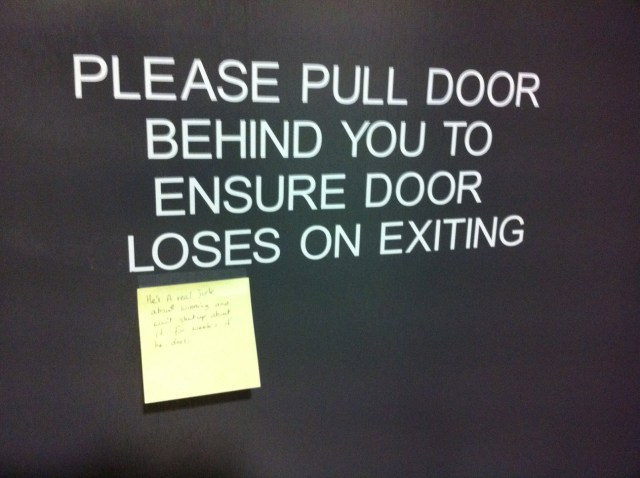 PLEASE PULL DOOR
BEHIND YOU TO
ENSURE DOOR
LOSES ON EXITING
He's A real Jerk
about winning and
won't shut up about
it for weeks if
he does